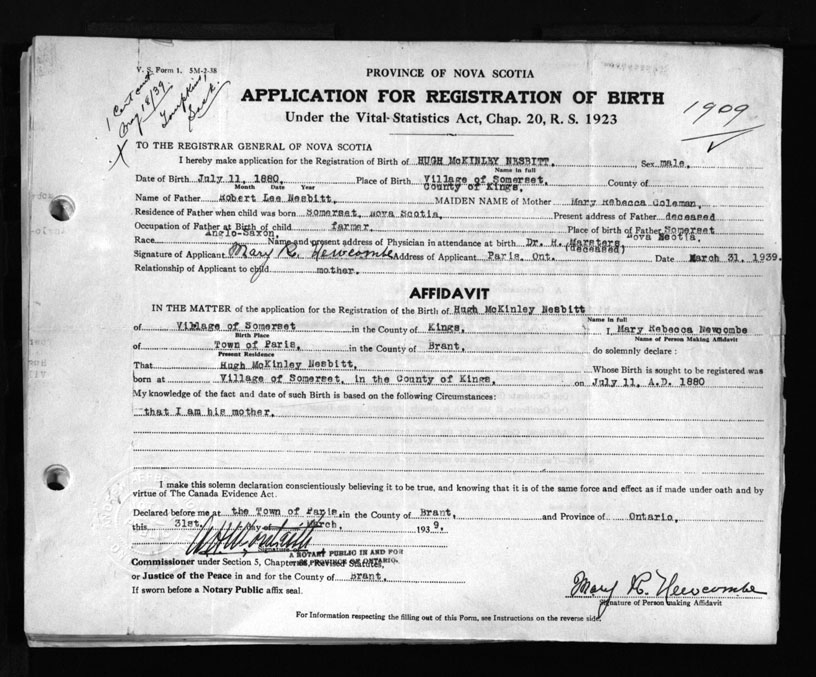 V. S. Form 1. 5M-2-38
PROVINCE OF NOVA SCOTIA
APPLICATION FOR REGISTRATION OF BIRTH
Under the Vital Statistics Act, Chap. 20, R. S. 1923
1 Cert
Aug 18/39.
1909
TO THE REGISTRAR GENERAL OF NOVA SCOTIA
I hereby make application for the Registration of Birth of HUGH McKINLEY NESBITT. Sex male.
Name in full
Date of Birth July 11, 1880. Place of Birth Village of Somerset, County of Kings, County of
Month Date Year
Name of Father Robert Lee Nesbitt, MAIDEN NAME of Mother Mary Rebecca Coleman,
Residence of Father when child was born Somerset, Nova Scotia, Present address of Father deceased
Occupation of Father at Birth of child farmer. Place of birth of Father Somerset Nova Scotia.
Race Anglo-Saxon, Name and present address of Physician in attendance at birth Dr. H. Marsters (deceased)
Signature of Applicant Mary R. Newcombe Address of Applicant Paris, Ont. Date March 31, 1939.
Relationship of Applicant to child mother.
AFFIDAVIT
IN THE MATTER of the application for the Registration of the Birth of Hugh McKinley Nesbitt
Name in full
of Village of Somerset in the County of Kings, I, Mary Rebecca Newcombe
Birth Place Name of Person Making Affidavit
of Town of Paris, in the County of Brant, do solemnly declare:
Present Residence
That Hugh McKinley Nesbitt, Whose Birth is sought to be registered was
born at Village of Somerset, in the County of Kings, on July 11, A.D. 1880
My knowledge of the fact and date of such Birth is based on the following Circumstances:
that I am his mother.
I make this solemn declaration conscientiously believing it to be true, and knowing that it is of the same force and effect as if made under oath and by
virtue of The Canada Evidence Act.
Declared before me at the Town of Paris, in the County of Brant, and Province of Ontario,
this 31st. day of March, 1939.
Signature of
A NOTARY PUBLIC IN AND FOR
THE PROVINCE OF ONTARIO.
Commissioner under Section 5, Chapter Revised Statutes,
or Justice of the Peace in and for the County of Brant.
If sworn before a Notary Public affix seal.
Mary R. Newcombe
Signature of Person making Affidavit
For Information respecting the filling out of this Form, see Instructions on the reverse side.